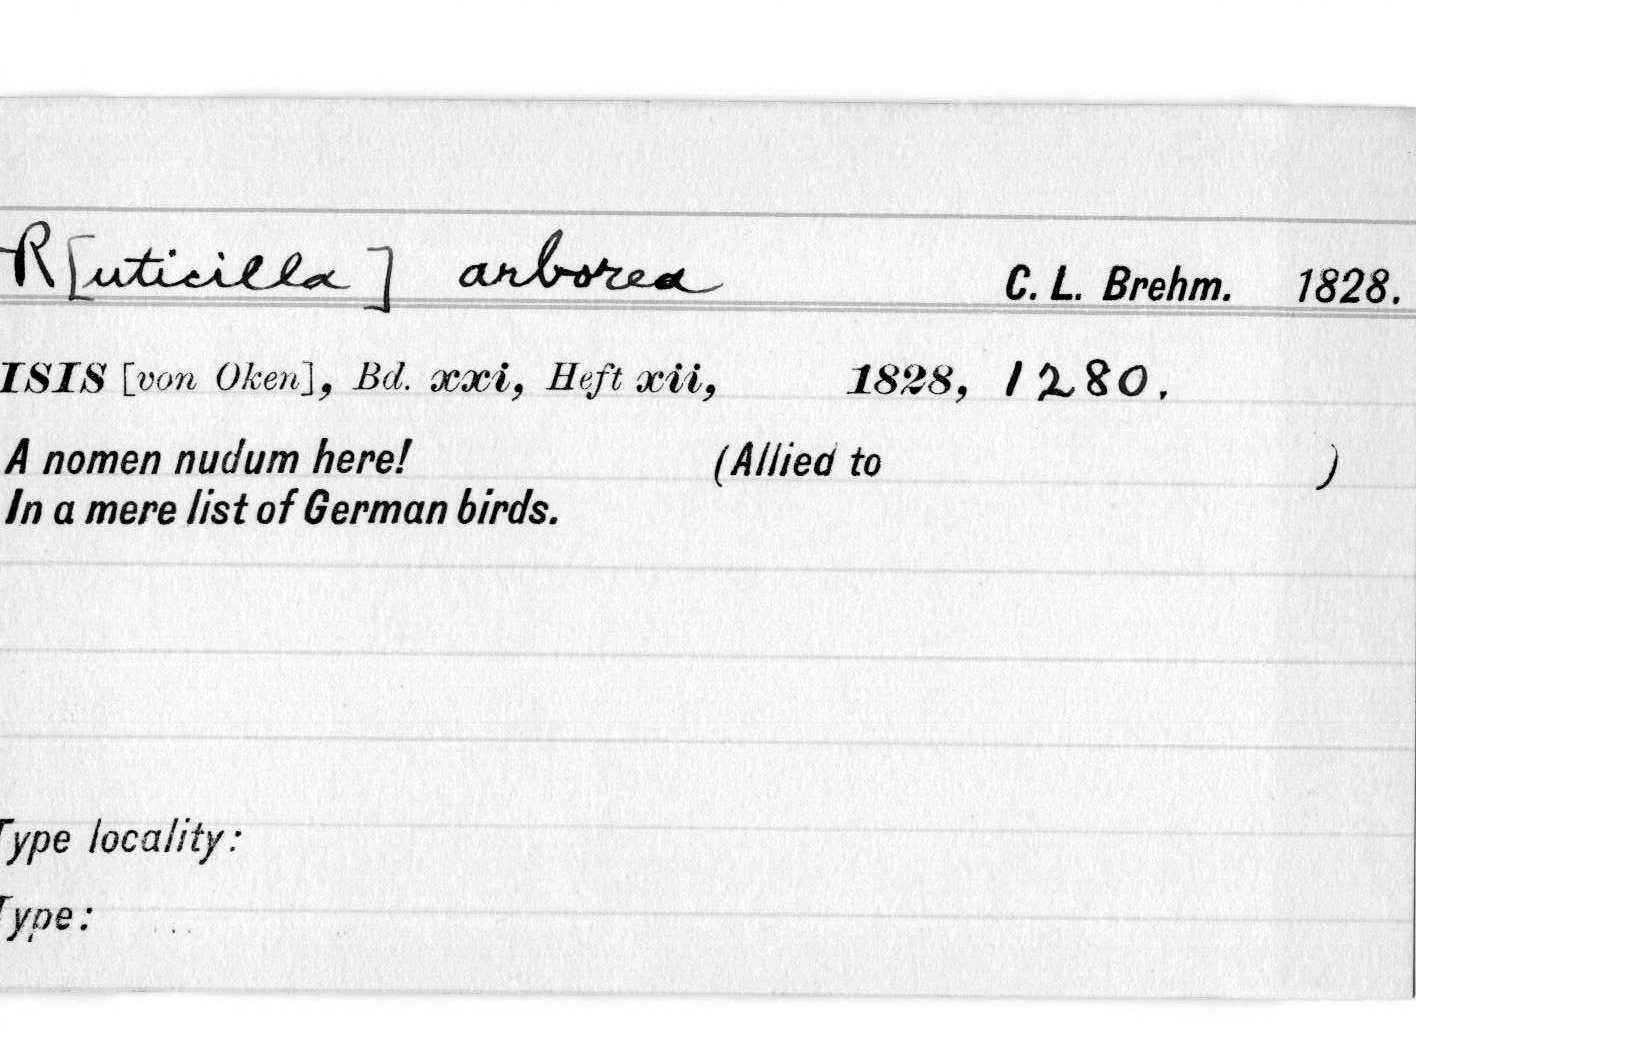 R[uticilla] arborea C. L. Brehm. 1828.
ISIS [von Oken], Bd. xxi, Heft xii, 1828, 1280.
A nomen nudum here! (Allied to )
In a mere list of German birds.
Type locality:
Type: